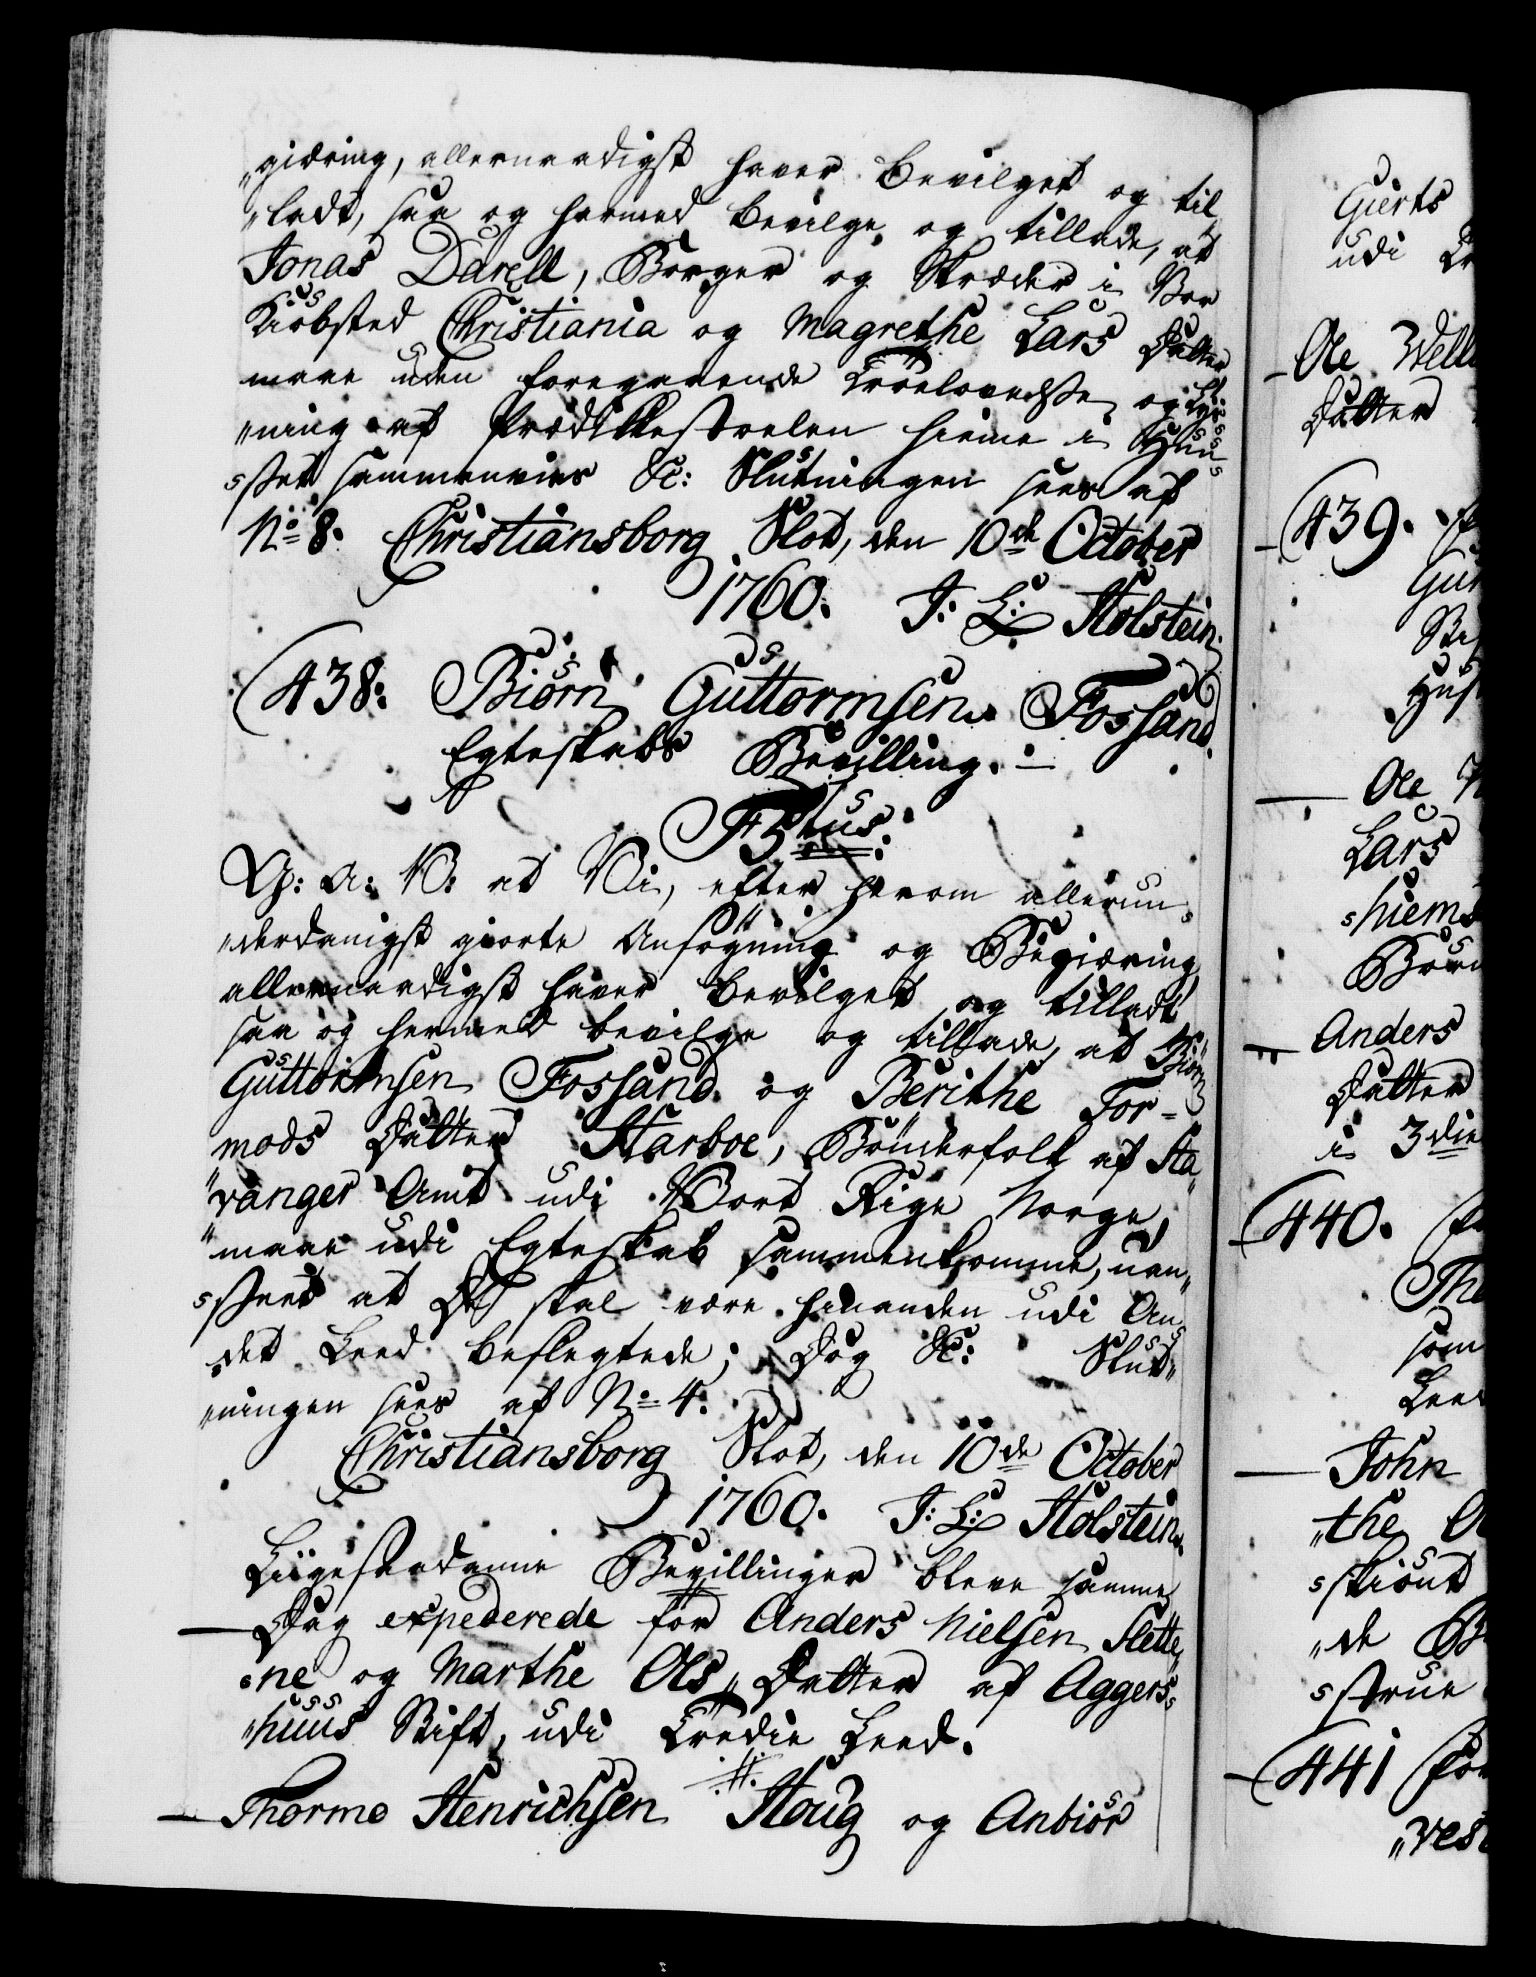 „giæring, allernaadigst haver bevilget og til„
„ladt, saa og hermed bevilge og tillade, at
Jonas Darell, Borger og Skræder i Vor
Kiöbsted Christiania og Magrethe Lars Datter
maae uden foregaaende Troelovelse og Lys„
„ning af Prædikkestoelen hieme i Huu„
„set sammenvies &c: Slutningen sees af
No. 8. Christiansborg Slot, den 10de October
1760. J: L: Holstein.
(438. Biörn Guttormsen Fossand
Egteskabs Bevilling. —
F5tus.
G: A: V: at Vi, efter herom allerun„
„derdanigst giorte Ansögning og Begiæring
allernaadigst haver bevilget og tilladt
saa og hermed bevilge og tillade, at Biörn
Guttormsen Fossand og Berithe Tor-
mods Datter Harboe, Bönderfolk af Sta„
„vanger Amt udi Vort Rige Norge,
maae udi Egteskab sammenkomme, uan„
„seet at De skal være hinanden udi An„
„det Leed beslegtede; Dog &c: Slut„
„ningen sees af No. 4.
Christiansborg Slot, den 10de October
1760. J: L: Holstein.
Liigesaadanne Bevillinger bleve samme
— Dag expederede for Anders Nielsen Slette„
„ne og Marthe Ols„ Datter af Aggers„
„huus Stift, udi Tredie Leed.
— Thormo Henrichsen Houg og Anbiör
Gierts
udi
— Ole
Datter
(439.
Ole
Lars
„hiems
Anders
Datter
i 3die
(440.
som
Leed
— John
„the
„skiönt
„de
(441